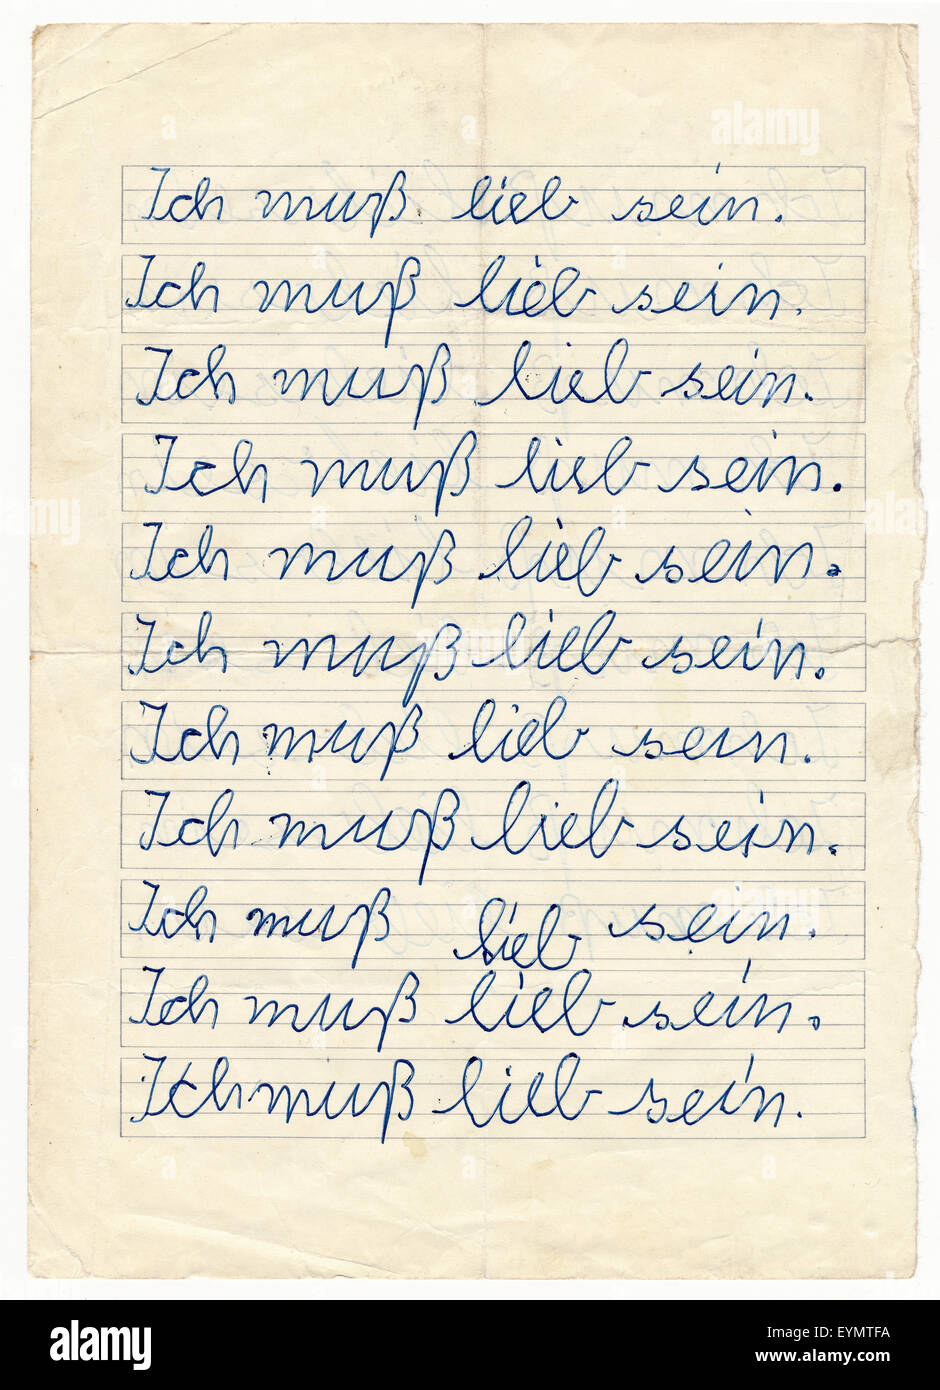 Ich muß lieb sein.
Ich muß lieb sein.
Ich muß lieb sein.
Ich muß lieb sein.
Ich muß lieb sein.
Ich muß lieb sein.
Ich muß lieb sein.
Ich muß lieb sein.
Ich muß lieb sein.
Ich muß lieb sein.
Ich muß lieb sein.
alamy
Image ID: EYMTFA
www.alamy.com